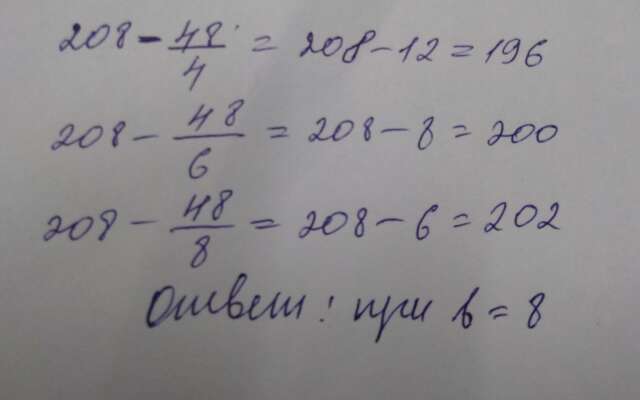 208 - 48/4 = 208 - 12 = 196
208 - 48/6 = 208 - 8 = 200
208 - 48/8 = 208 - 6 = 202
Ответ: при b = 8